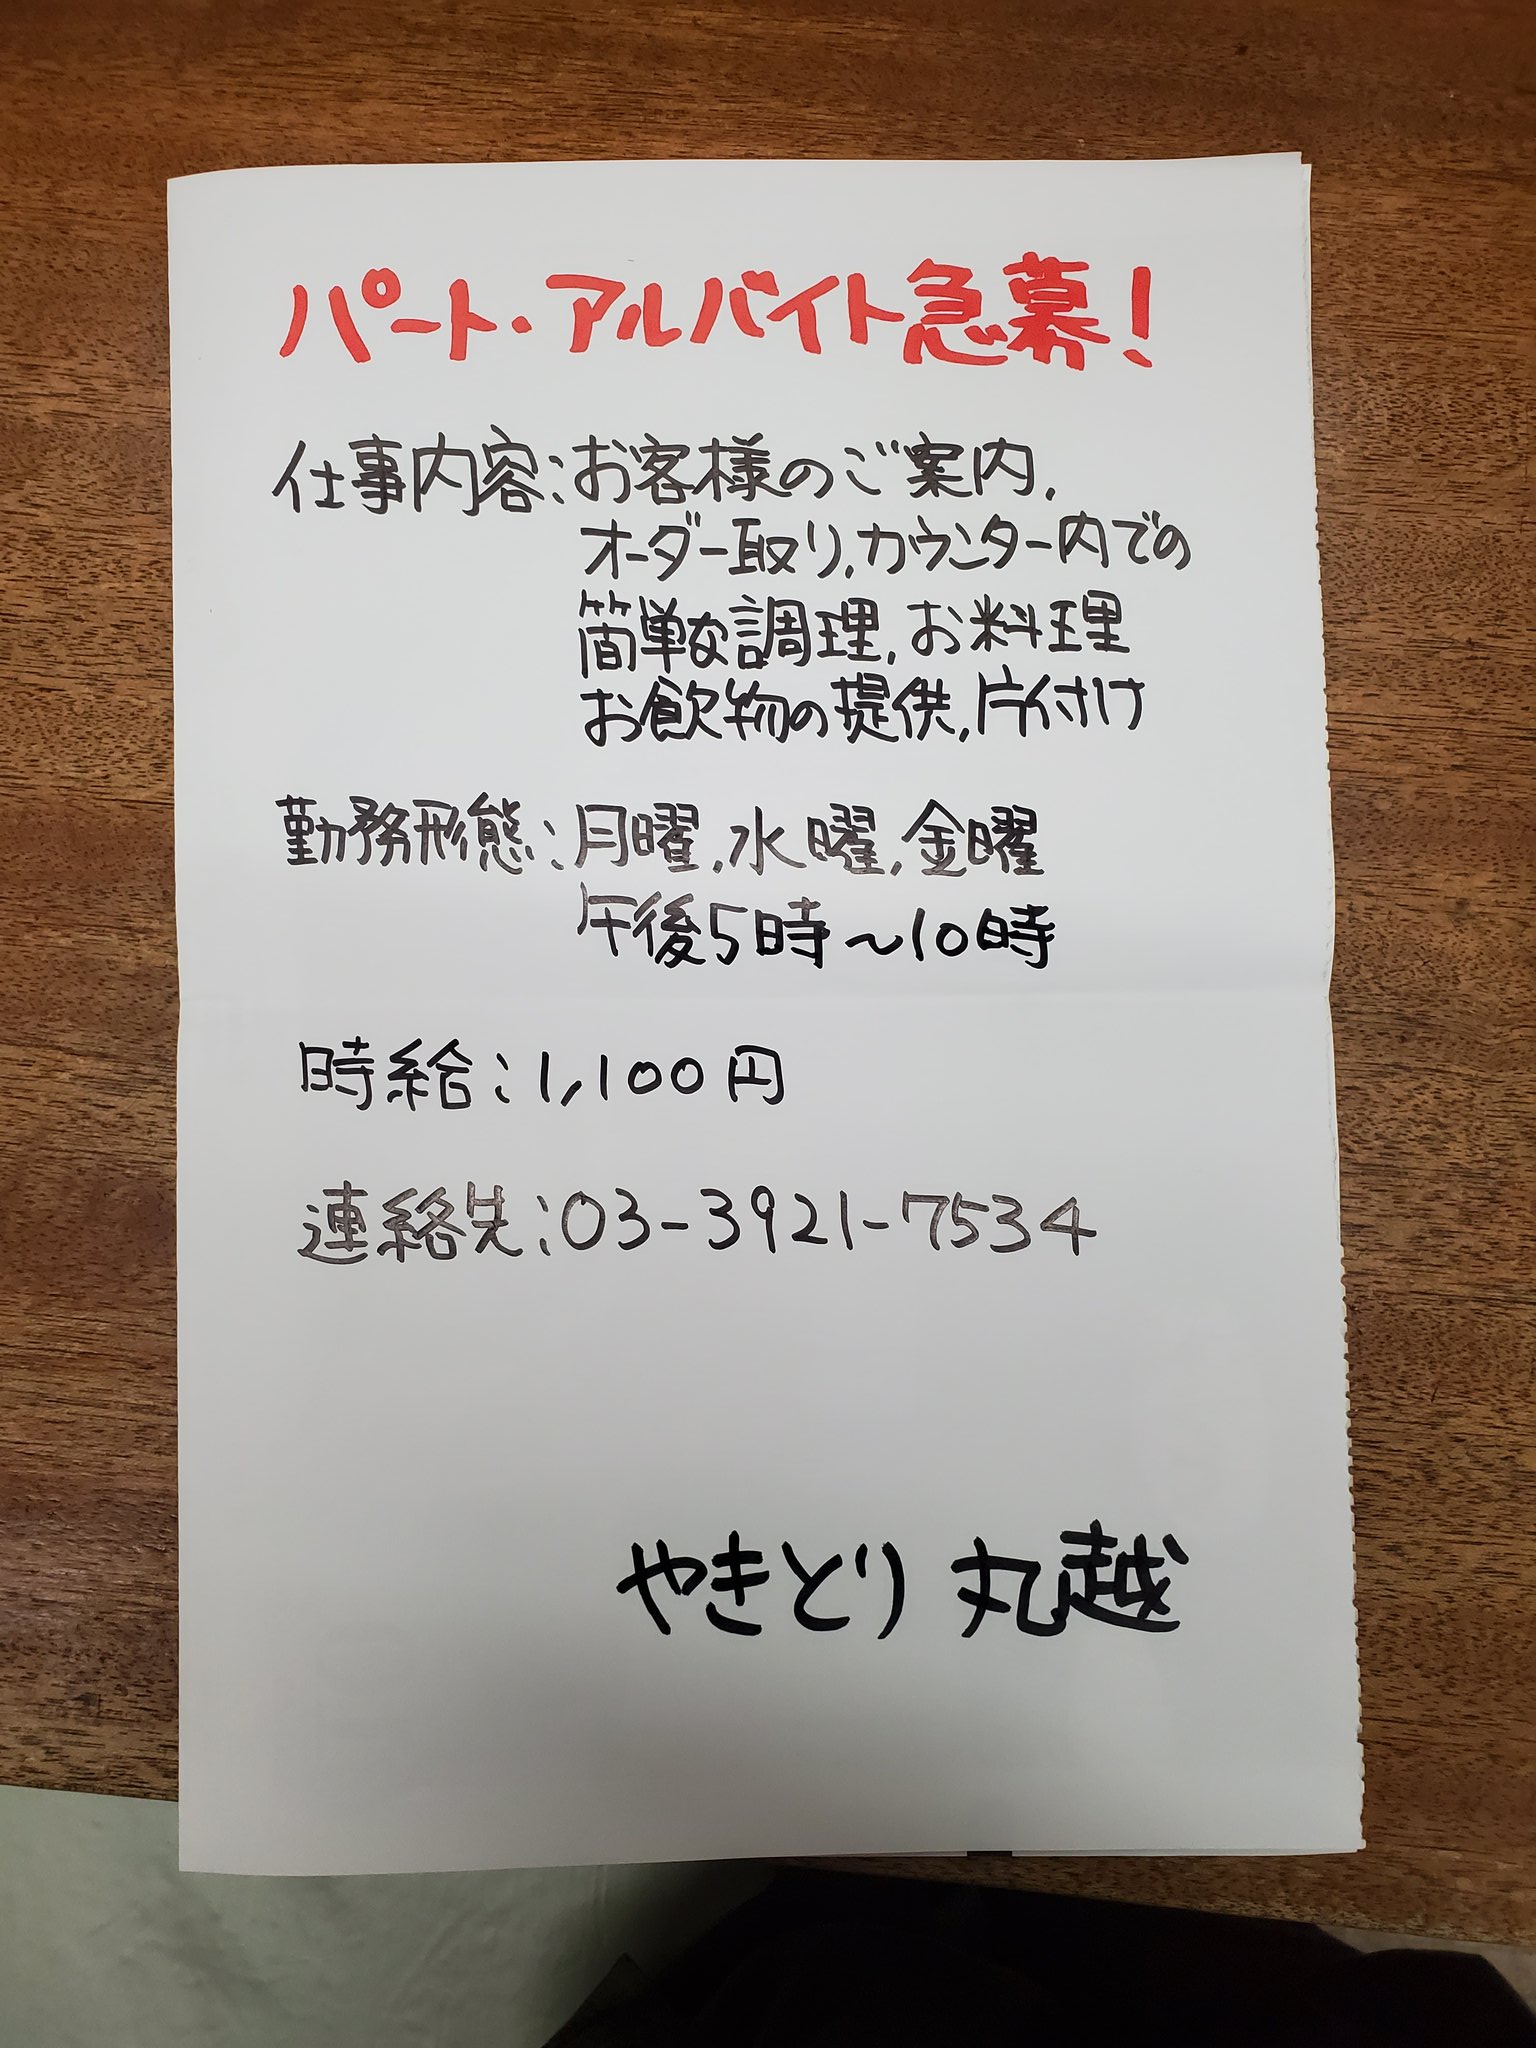 パート・アルバイト急募!
仕事内容:お客様のご案内,
オーダー取り,カウンター内での
簡単な調理,お料理
お飲物の提供,片付け
勤務形態:月曜,水曜,金曜
午後5時~10時
時給:1,100円
連絡先:03-3921-7534
やきとり 丸越